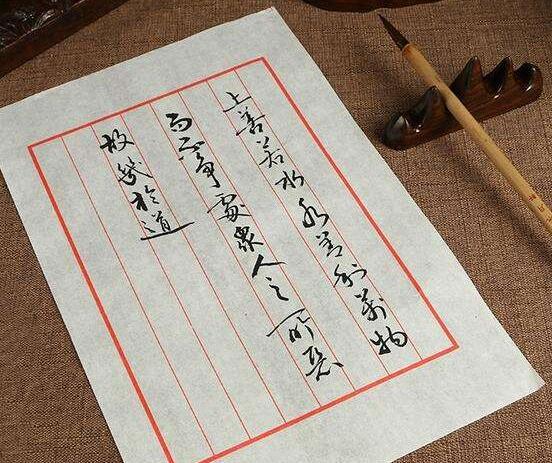 上善若水水善利萬物
而不争處衆人之所惡
故幾於道